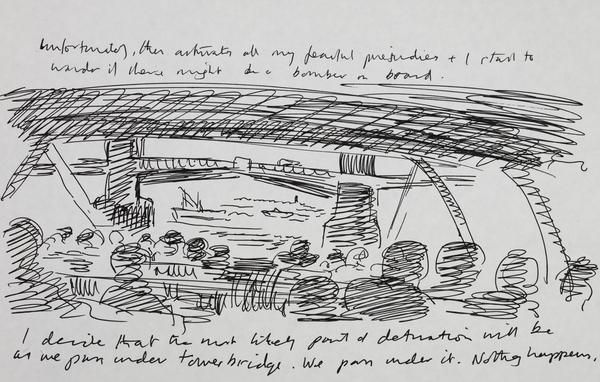 Unfortunately, this activates all my fearful prejudices + I start to
wonder if there might be a bomber on board.
I decide that the most likely point of detonation will be
as we pass under tower bridge. We pass under it. Nothing happens.